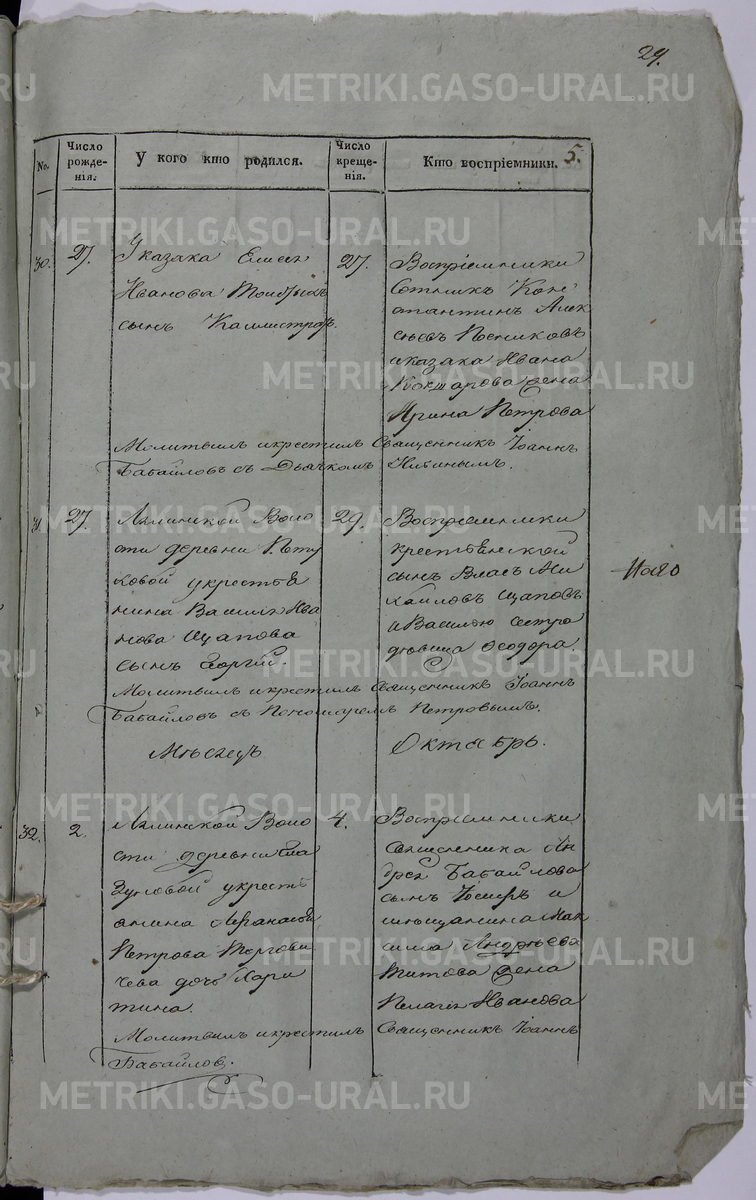 29.
5.
No. Число рожде-нія. У кого кто родился. Число креще-нія. Кто воспріемники.
30. 27. Указака Елисея
Иванова
сынъ Каллистратъ.
27. Воспріемники
Сотникъ Кон
стантинъ Алек
сѣевъ Посниковъ
иказака Ивана
Кокшарова жена
Ирина Петрова
Молитвилъ икрестилъ Священникъ Іоаннъ
Бабайловъ съ Дьячкомъ
31. 27. Лялинской Воло
сти деревни
укрестья
нина Василья Ива
нова Щапова
сынъ Георгій.
29. Воспріемники
крестьянской
сынъ Власъ Ми
хайловъ Щаповъ
и Василью сестра
дѣвица Ѳеодора.
Молитвилъ икрестилъ Священникъ Іоаннъ
Бабайловъ съ Пономаремъ Петровымъ.
Мѣсяцъ Октябрь.
32. 2. Лялинской Воло
сти деревни
укресть
янина Афанасья
Петрова Торгови
чева дочь Хари
тина.
4. Воспріемники
священника Ан
дрея Бабайлова
сынъ Іосифъ и
мѣщанина Мак
сима Андрѣева
Титова жена
Пелагея Иванова
Молитвилъ икрестилъ Священникъ Іоаннъ
Бабайлов.
METRIKI.GASO-URAL.RU